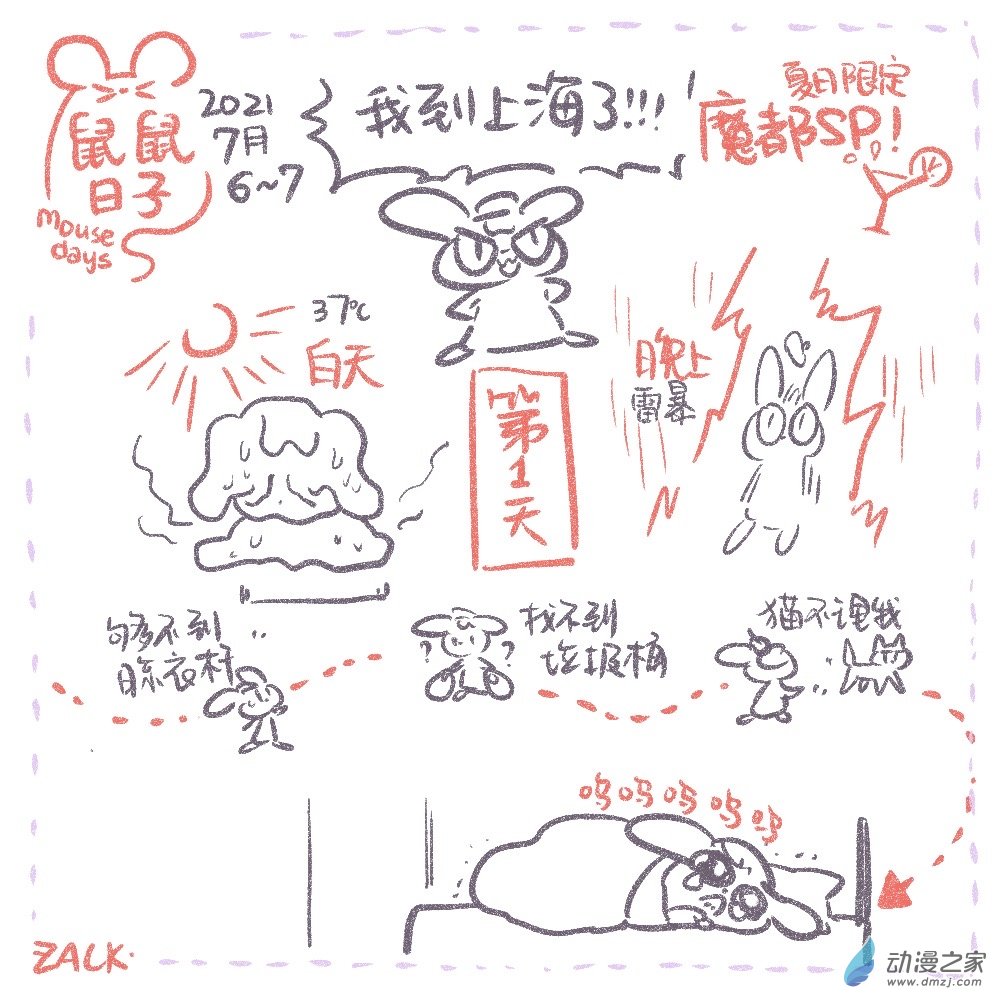 鼠鼠
日子
mouse
days
2021
7月
6~7
我到上海了!!!
夏日限定
魔都SP!
37℃
白天
第1天
晚上
雷暴
够不到
晾衣杆
找不到
垃圾桶
猫不理我
呜呜呜呜呜
ZALK.
动漫之家
www.dmzj.com